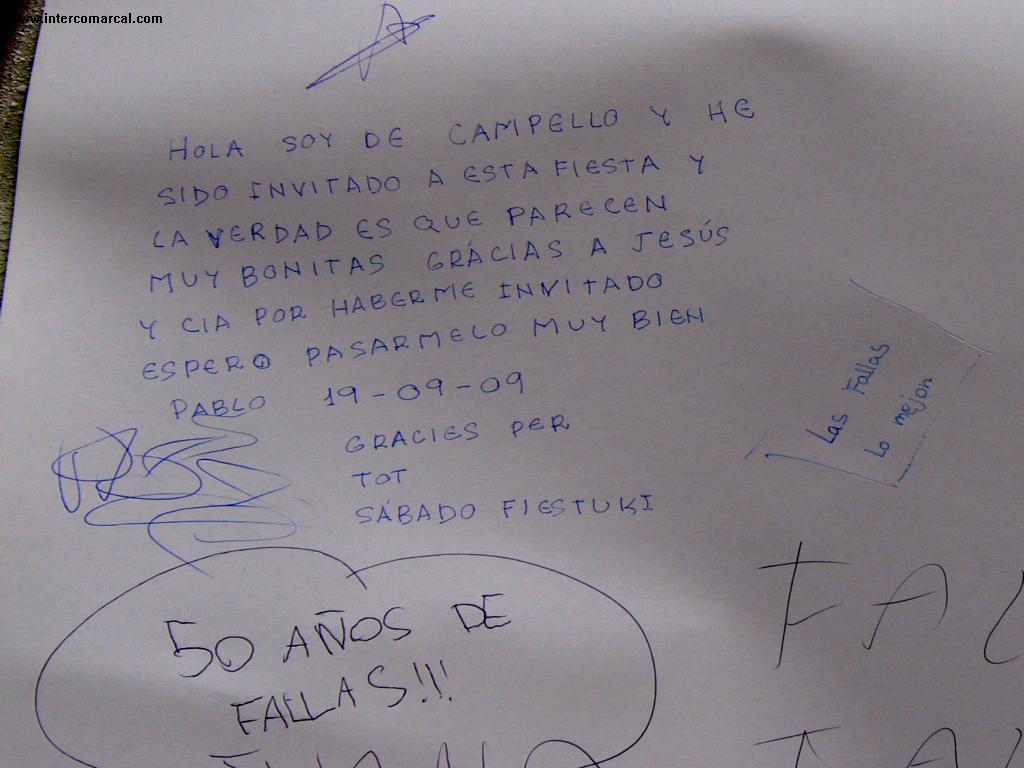 www.intercomarcal.com
HOLA SOY DE CAMPELLO Y HE
SIDO INVITADO A ESTA FIESTA Y
LA VERDAD ES QUE PARECEN
MUY BONITAS GRÁCIAS A JESÚS
Y CIA POR HABERME INVITADO
ESPERO PASARMELO MUY BIEN
PABLO 19-09-09
GRACIES PER
TOT
SÁBADO FIESTUKI
Las Fallas
Lo mejor
50 AÑOS DE
FALLAS!!!
FAL